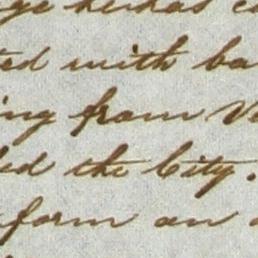 ted with ba
ing from V
led the City.
form an